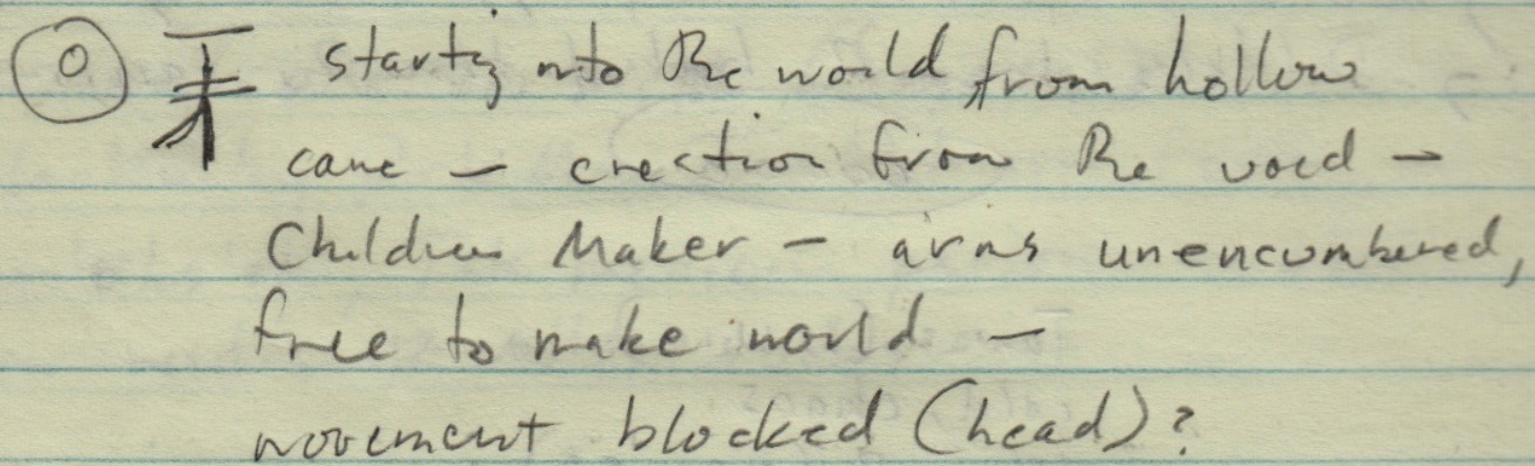 0 starting into the world from hollow
cane – creation from the void –
Children Maker – arms unencumbered,
free to make world –
movement blocked (head)?